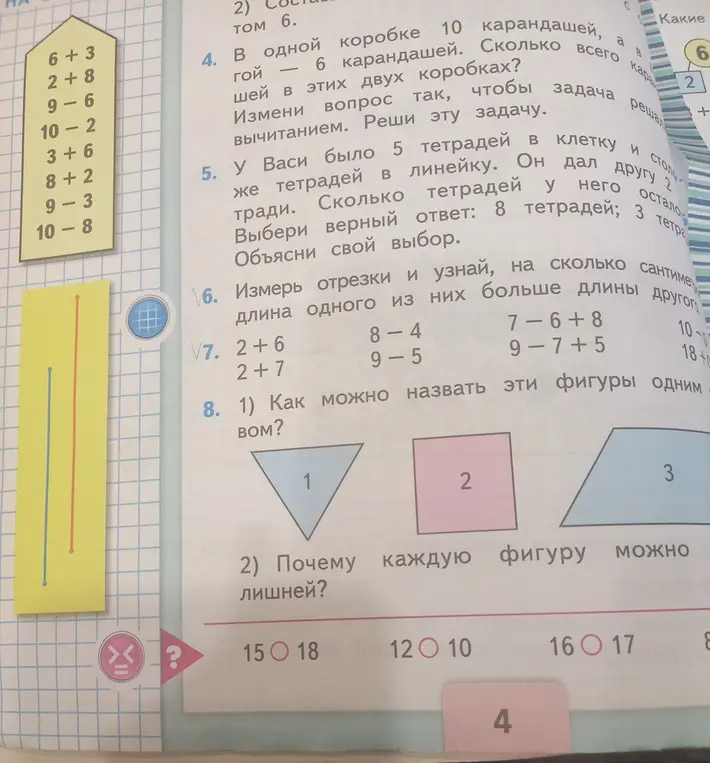 6 + 3
2 + 8
9 − 6
10 − 2
3 + 6
8 + 2
9 − 3
10 − 8
2)
том 6.
4. В одной коробке 10 карандашей, а в
гой — 6 карандашей. Сколько всего
шей в этих двух коробках?
Измени вопрос так, чтобы задача
вычитанием. Реши эту задачу.
5. У Васи было 5 тетрадей в клетку и
же тетрадей в линейку. Он дал другу 2
тради. Сколько тетрадей у него
Выбери верный ответ: 8 тетрадей; 3
Объясни свой выбор.
6. Измерь отрезки и узнай, на сколько
длина одного из них больше длины
7. 2 + 6 8 − 4 7 − 6 + 8 10 −
2 + 7 9 − 5 9 − 7 + 5 18
8. 1) Как можно назвать эти фигуры одним
вом?
1 2 3
2) Почему каждую фигуру можно
лишней?
? 15 ○ 18 12 ○ 10 16 ○ 17
4
Какие
6
2
+